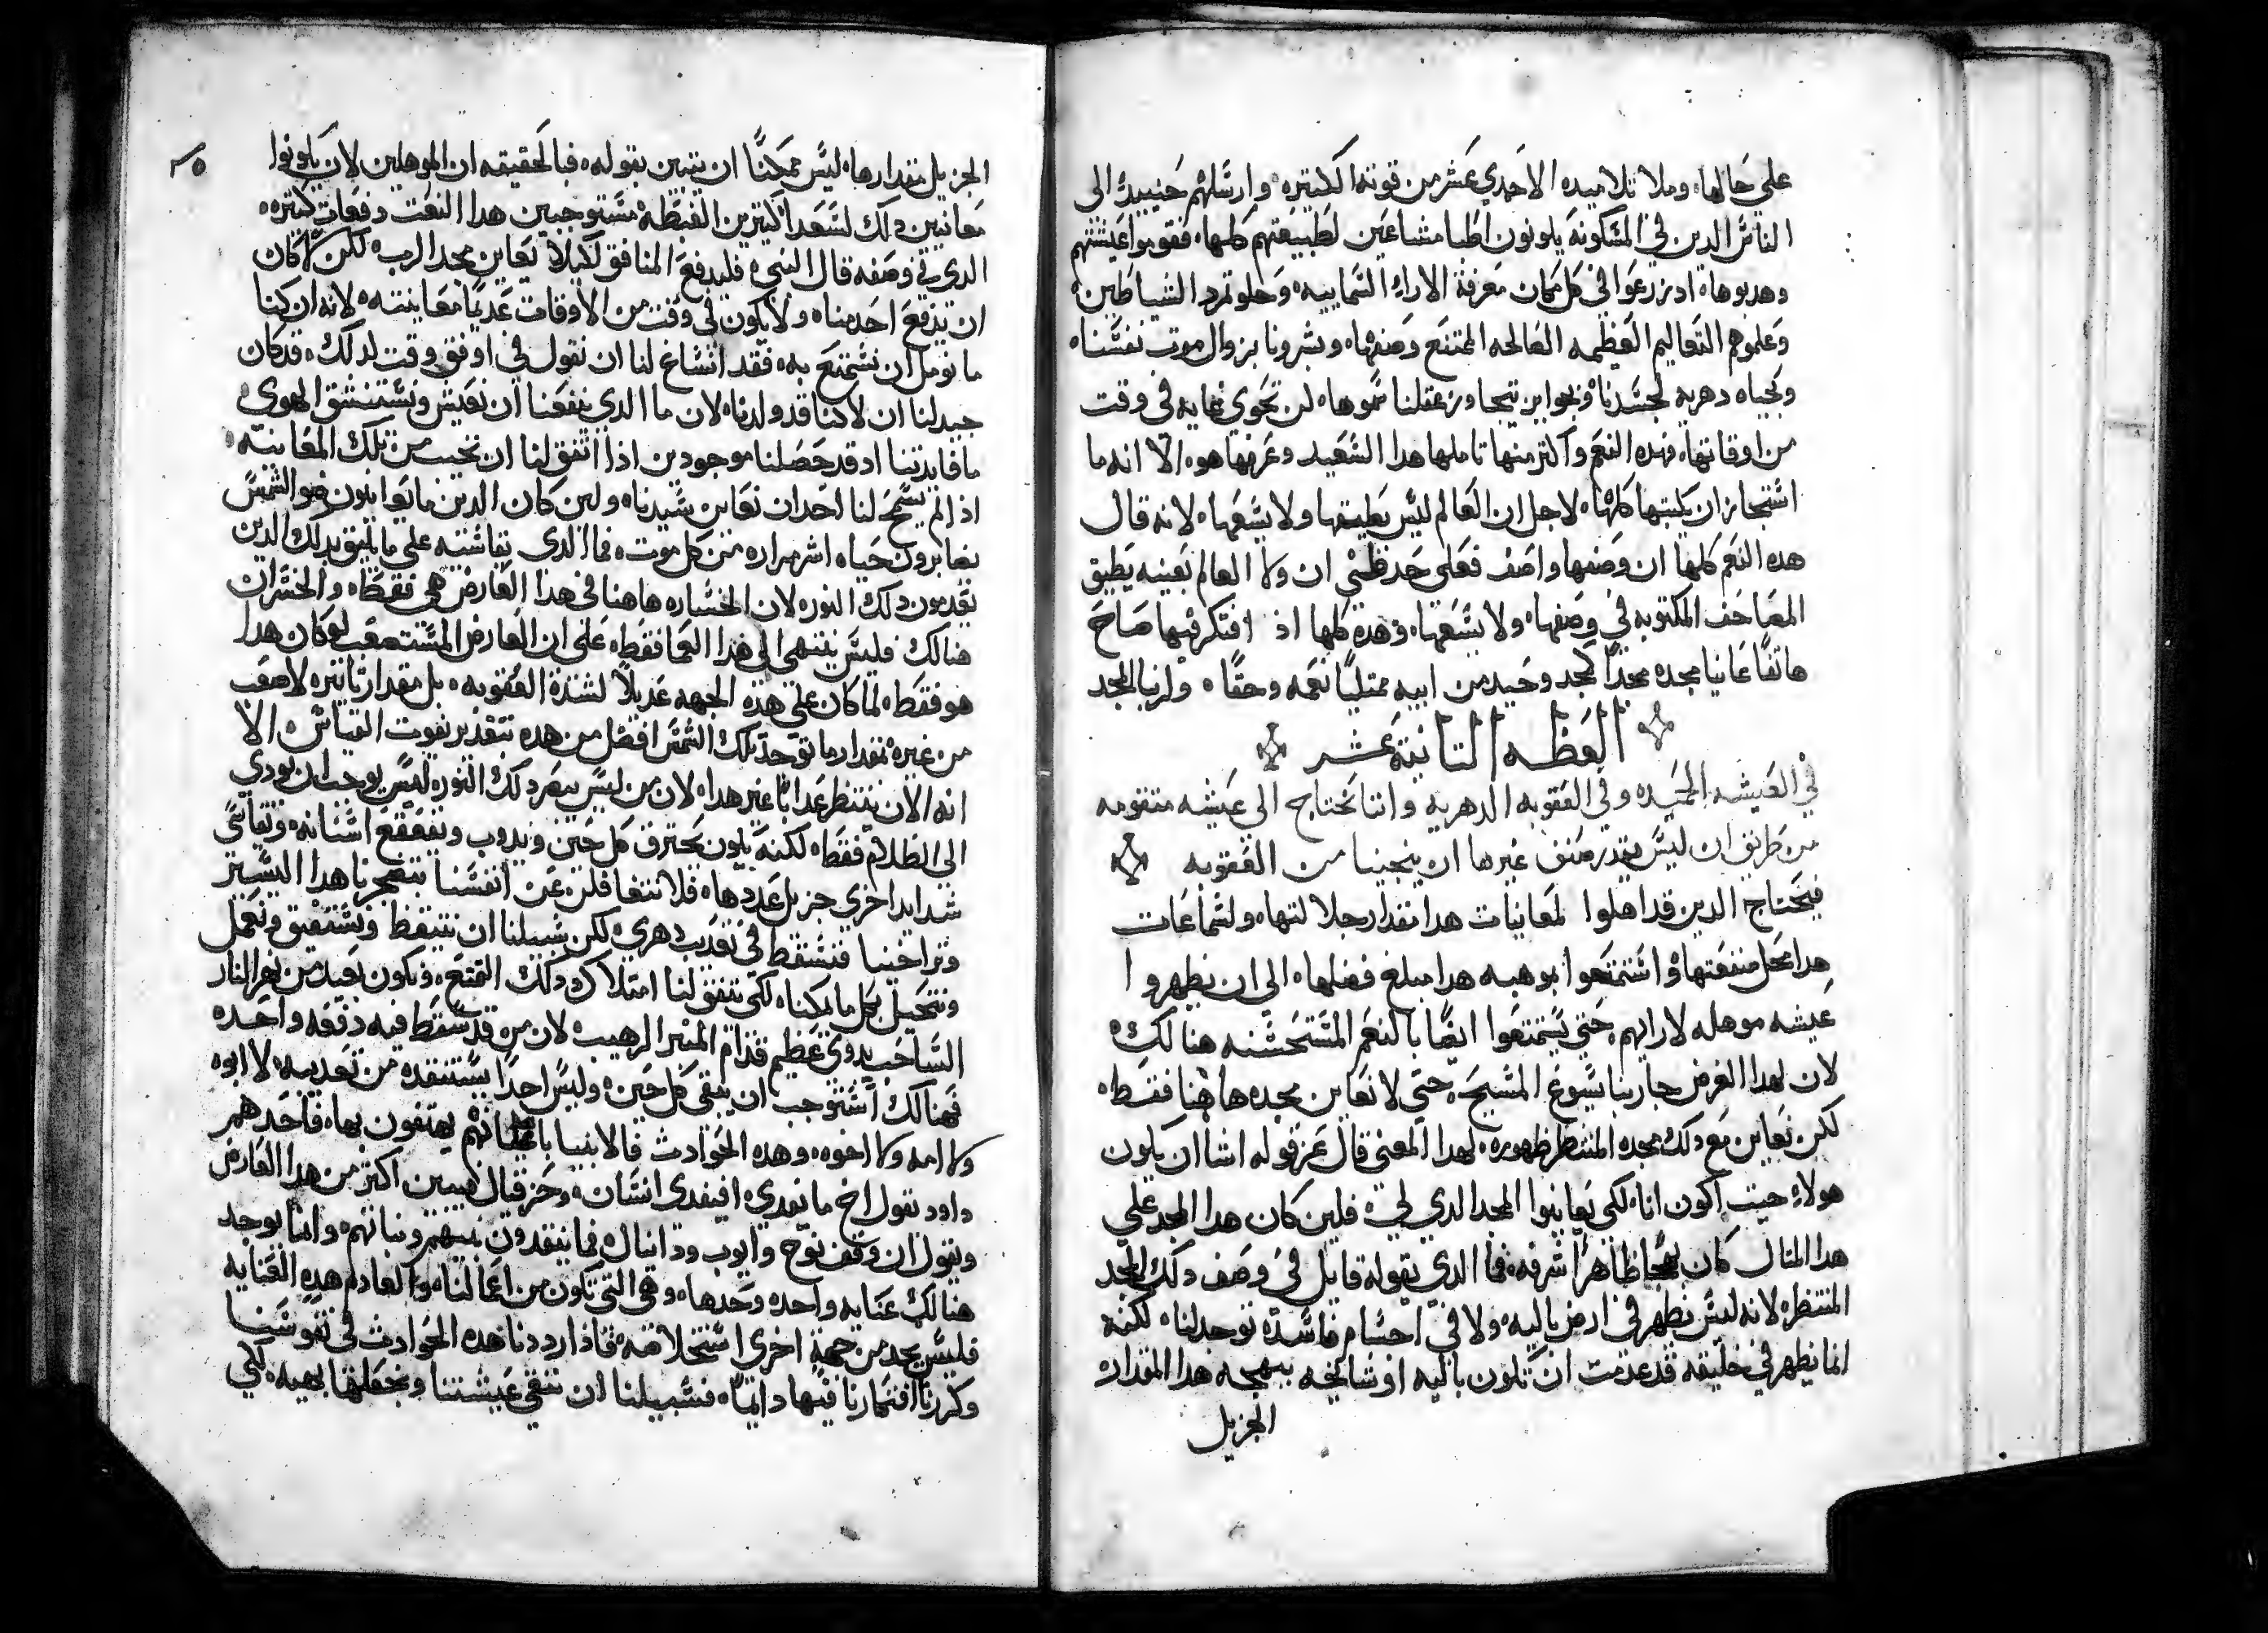 على حالها، وملا تلاميده الاحدي عشر من قوته الكتيره، وارسلهم حينيد الى
الناس الدين في المسكونه يكونون اطبا مشاعين لطبيعتهم كلها، فقوموا عيشتهم
وهدبوها، اد زرعوا في كل مكان معرفة الاراء السماييه، وحلو تمرد الشياطين،
وعلموهم التعاليم العظيمه الصالحه الممتنع وصفها، وبشرونا بزوال موت نفسنا،
وبحياه دهريه لجسدنا، وبجوايز تتجاوز عقلنا سموها، لن تحوي نهايه في وقت
من اوقاتها، فهده النعم واكتر منها تاملها هدا السعيد وعرفها هو، الا انه ما
استجاز ان يكتبها كلها، لاجل ان العالم ليس يطيقها ولا يسعها، لانه قال
هده النعم كلها ان وصفها واصف فعلى حد ظني ان ولا العالم بعينه يطيق
المصاحف المكتوبه في وصفها، ولا يسعها، فهده كلها اذ افتكر فيها صاح
هاتفًا عاينا مجده مجدًا كمجد وحيد من ابيه ممتليًا نعمه وحقًا، ولربنا المجد
العظه التانية عشر
في العيشه الحميده وفي العقوبه الدهريه واننا نحتاج الى عيشه متقومه
من طريق ان ليس يقدر صنف غيرها ان ينجينا من العقوبه
فيحتاج الدين قد اهلوا لمعاينات هدا مقدار جلالتها، ولسماعات
هدا محل منفعتها، واستمتعوا بموهبه هدا مبلغ فضلها، الى ان يظهروا
عيشه موهله لارايهم، حتى يستمتعوا ايضًا بالنعم المستحسنه هنالك،
لان لهدا الغرض جا ربنا يسوع المسيح، حتى لا نعاين مجده هاهنا فقط،
لكن نعاين مع دلك مجده المنتظر ظهوره، لهدا المعنى قال عز قوله اشا ان يكون
هولاء حيت اكون انا، لكي يعاينوا المجد الدي لي، فلين كان هدا المجد على
هدا المتال كان بهجا ظاهرًا شرفه، فما الدي يقوله قايل في وصف دلك المجد
المنتظر، لانه ليس يظهر في ارض باليه، ولا في اجسام فاسده توجد لنا، لكنه
انما يظهر في خليقه قد عدمت ان تكون باليه او شايخه ببهجه هدا المقدار
الجزيل
٣٥
الجزيل مقدارها، ليس ممكنًا ان يتبين بقوله، فبالحقيقه ان الموهلين لان يكونوا
معاينين دلك لسعدا كتيرين الغبطه مستوجبين هدا النعت دفعات كتيره،
الدي في وصفه قال النبي، فليدفع المنافق لكيلا يعاين مجد الرب، لكن لا كان
ان يدفع احد منا، ولا يكون في وقت من الاوقات عديمًا معاينته، لانه ان كنا
ما نومل ان نستمتع به، فقد انساغ لنا ان نقول في اوفق وقت لدلك، قد كان
جيد لنا ان لا كنا قد ولدنا، لان ما الدي ينفعنا ان نعيش ونستنشق الهوى،
ما فايدتنا اد قد حصلنا موجودين اذا اتفق لنا ان نخيب من تلك المعاينه،
اذ لم يسمح لنا احد ان نعاين سيدنا، ولين كان الدين ما يعاينون ضو الشمس
يصابرون حياه اشر مراره من كل موت، فما الدي يقاسيه على ما يليق بدلك الدين
يعدمون دلك النور، لان الخساره هاهنا في هدا العارض هي فقط، والخسران
هنالك فليس ينتهي الى هدا العما فقط، على ان العارض المستصعب لو كان هدا
هو فقط، لما كان على هده الجهه عديلاً لشدة العقوبه، بل مقدار تاتيره لاصعب
من غيره بمقدار ما توجد تلك الشمس افضل من هده بتقدير يفوت القياس، الا
انه الان ينتظر عدابًا غير هدا، لان من ليس يبصر دلك النور، ليس يوجب ان يودي
الى الظلام فقط، لكنه يكون يحترق كل حين ويدوب ويقعقع اسنانه، ويقاسي
شدايد اخري جزيل عددها، فلا نتغافلن عن انفسنا بتضجرنا هدا اليسير
وتراخينا فنسقط في تعديب دهري، لكن سبيلنا ان نتيقظ ونستفيق ونعمل
ونتحيل بكل ما يمكنا، لكي يتفق لنا امتلاك دلك التمتع، ونكون بعيد من نهر النار
الساحب بدوي عظيم قدام المنبر الرهيب، لان من قد سقط فيه دفعه واحده
فهنالك استوجب ان يبقى كل حين، وليس احدًا يستنقده من تعديبه، لا ابوه
ولا امه ولا اخوه، وهده الحوادث فالانبيا باعلانهم يهتفون بها، فاحدهم
داود يقول اخ ما يفدي، افيفدى انسان، وحزقيال فيبين اكتر من هدا العارض
ويقول ان وقف نوح وايوب ودانيال، فما ينقدون بنيهم وبناتهم، وانما يوجد
هنالك عنايه واحده وحدها، وهي التي تكون من اعمالنا، والعادم هده العنايه
فليس يجد من جهة اخرى استخلاصه، فاذا رددنا هده الحوادث في نفوسنا
وكررنا افتكارنا فيها دايمًا، فسبيلنا ان ننقي عيشتنا ونجعلها بهيه، لكي